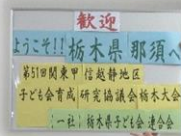 歓迎
ようこそ!!栃木県那須へ
第51回関東甲信越静地区
子ども会育成研究協議会栃木大会
一社)栃木県子ども会連合会